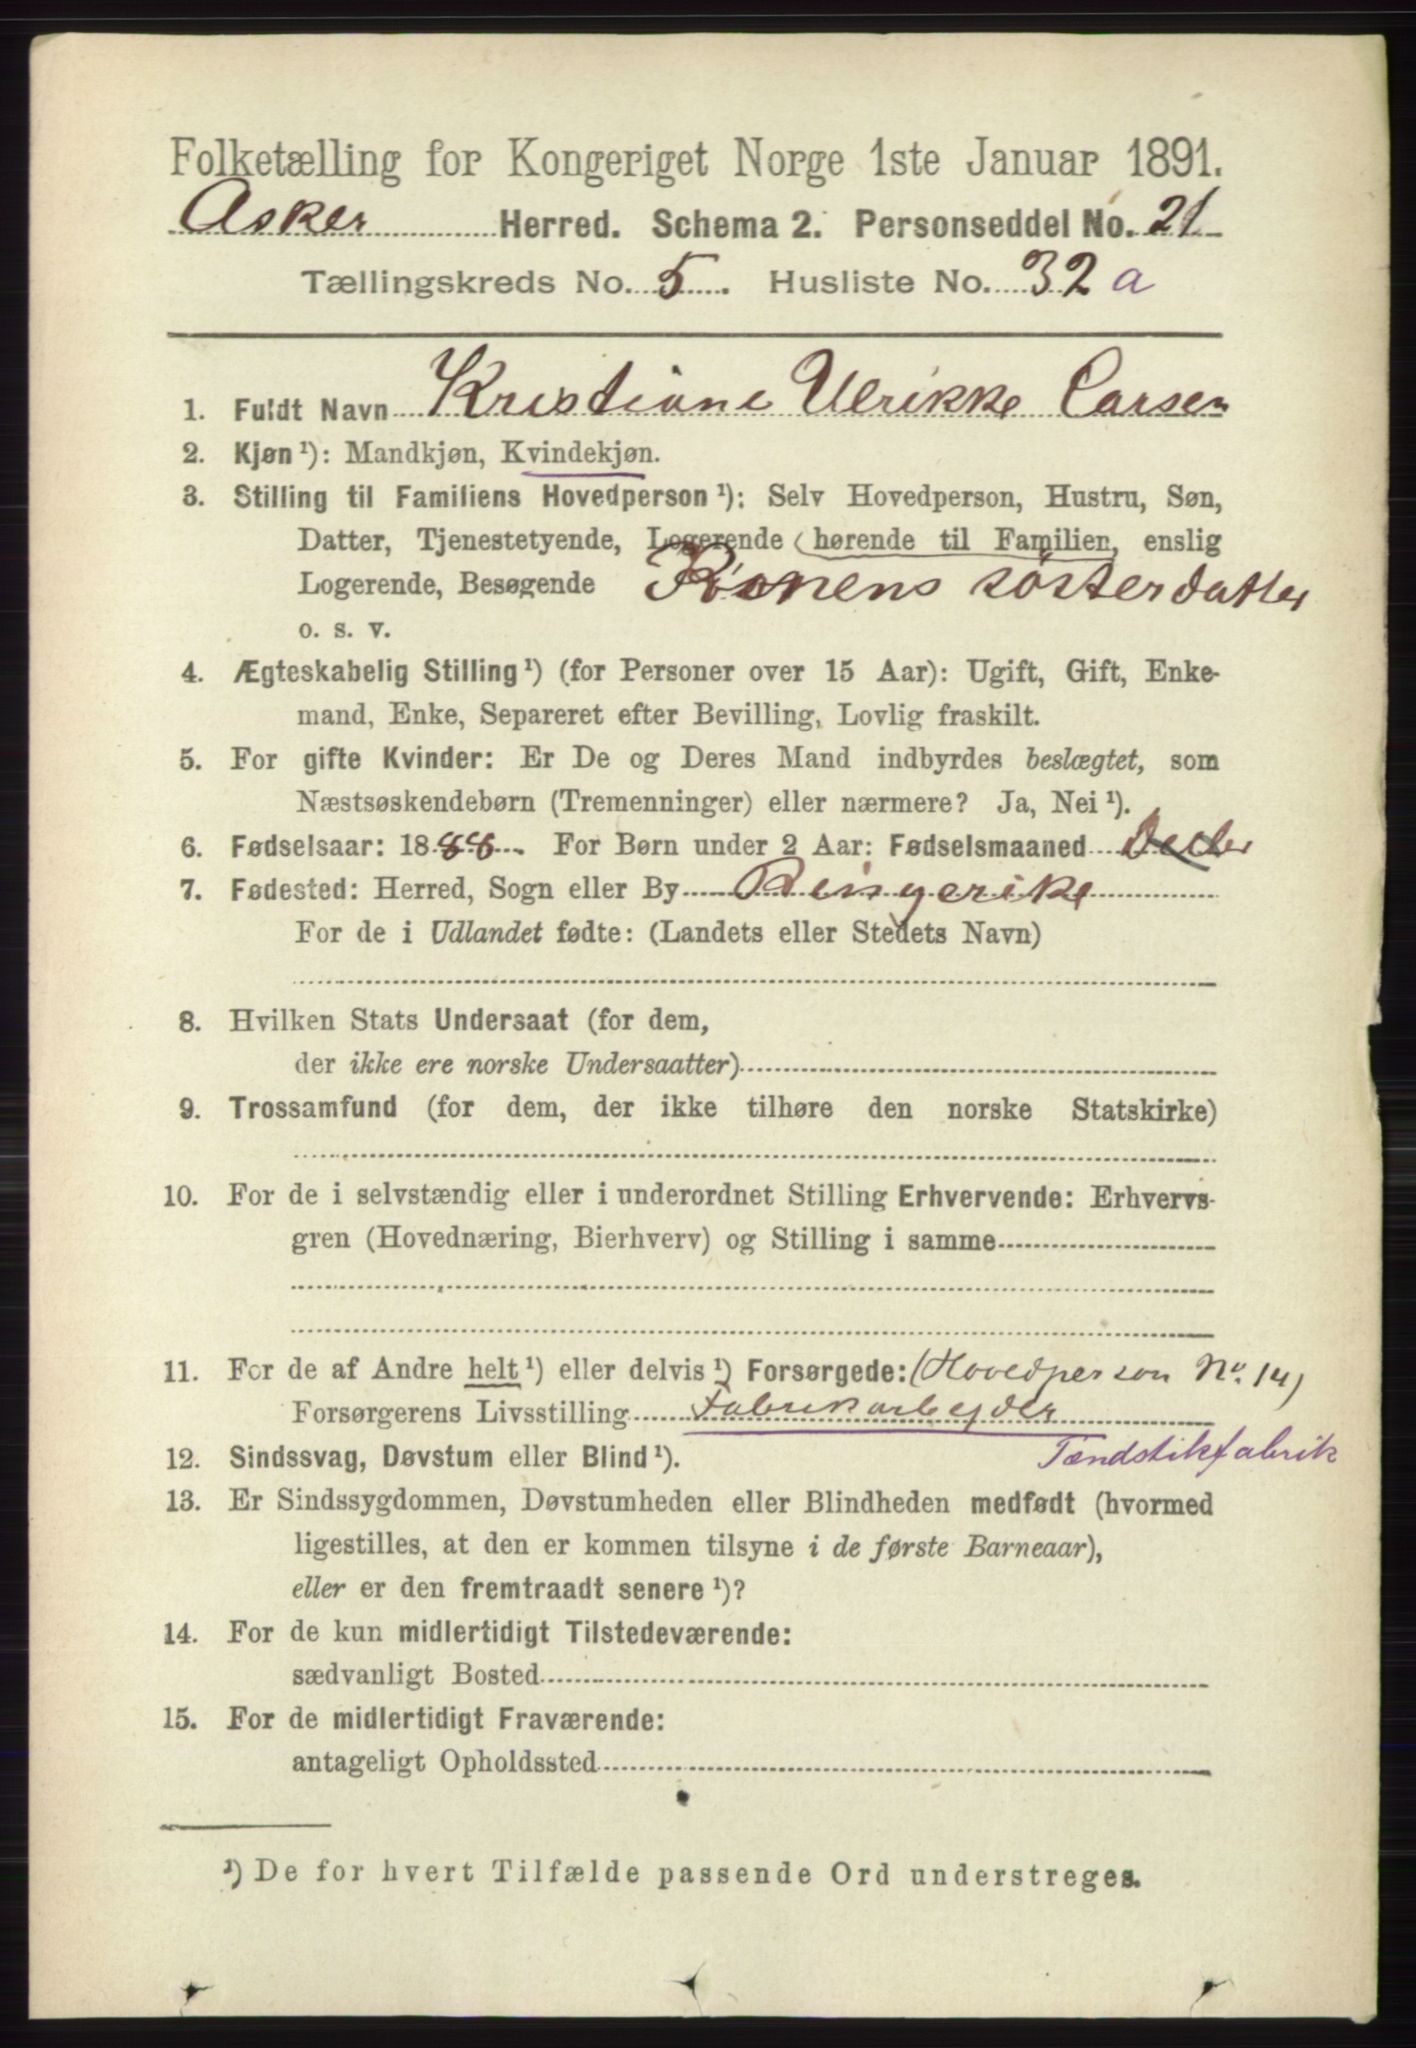 Folketælling for Kongeriget Norge 1ste Januar 1891.
Asker Herred. Schema 2. Personseddel No. 21
Tællingskreds No. 5. Husliste No. 32 a
1. Fuldt Navn Kristiane Ulrikke Larsen
2. Kjøn ¹): Mandkjøn, Kvindekjøn.
3. Stilling til Familiens Hovedperson ¹): Selv Hovedperson, Hustru, Søn,
Datter, Tjenestetyende, Logerende hørende til Familien, enslig
Logerende, Besøgende Konens sösterdatter
o. s. v.
4. Ægteskabelig Stilling ¹) (for Personer over 15 Aar): Ugift, Gift, Enke-
mand, Enke, Separeret efter Bevilling, Lovlig fraskilt.
5. For gifte Kvinder: Er De og Deres Mand indbyrdes beslægtet, som
Næstsøskendebørn (Tremenninger) eller nærmere? Ja, Nei ¹).
6. Fødselsaar: 1888. For Børn under 2 Aar: Fødselsmaaned
7. Fødested: Herred, Sogn eller By Ringerike
For de i Udlandet fødte: (Landets eller Stedets Navn)
8. Hvilken Stats Undersaat (for dem,
der ikke ere norske Undersaatter)
9. Trossamfund (for dem, der ikke tilhøre den norske Statskirke)
10. For de i selvstændig eller i underordnet Stilling Erhvervende: Erhvervs-
gren (Hovednæring, Bierhverv) og Stilling i samme
11. For de af Andre helt ¹) eller delvis ¹) Forsørgede: (Hovedperson No. 14)
Forsørgerens Livsstilling Fabrikarbeyder
12. Sindssvag, Døvstum eller Blind ¹). Tændstikfabrik
13. Er Sindssygdommen, Døvstumheden eller Blindheden medfødt (hvormed
ligestilles, at den er kommen tilsyne i de første Barneaar),
eller er den fremtraadt senere ¹)?
14. For de kun midlertidigt Tilstedeværende:
sædvanligt Bosted
15. For de midlertidigt Fraværende:
antageligt Opholdssted
¹) De for hvert Tilfælde passende Ord understreges.